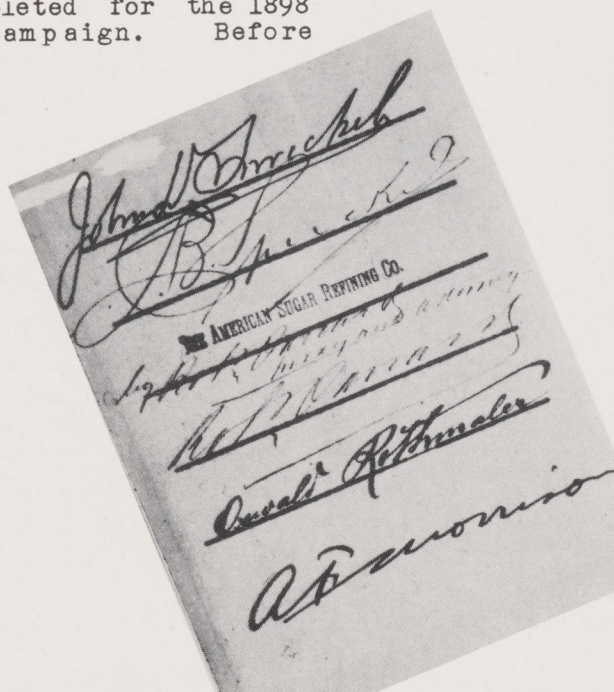 leted for the 1898
ampaign. Before
John D Spreckels
A. B. Spreckels
THE AMERICAN SUGAR REFINING CO.
by R. P.
attorney
Oswald Rothmaler
A F Morrison